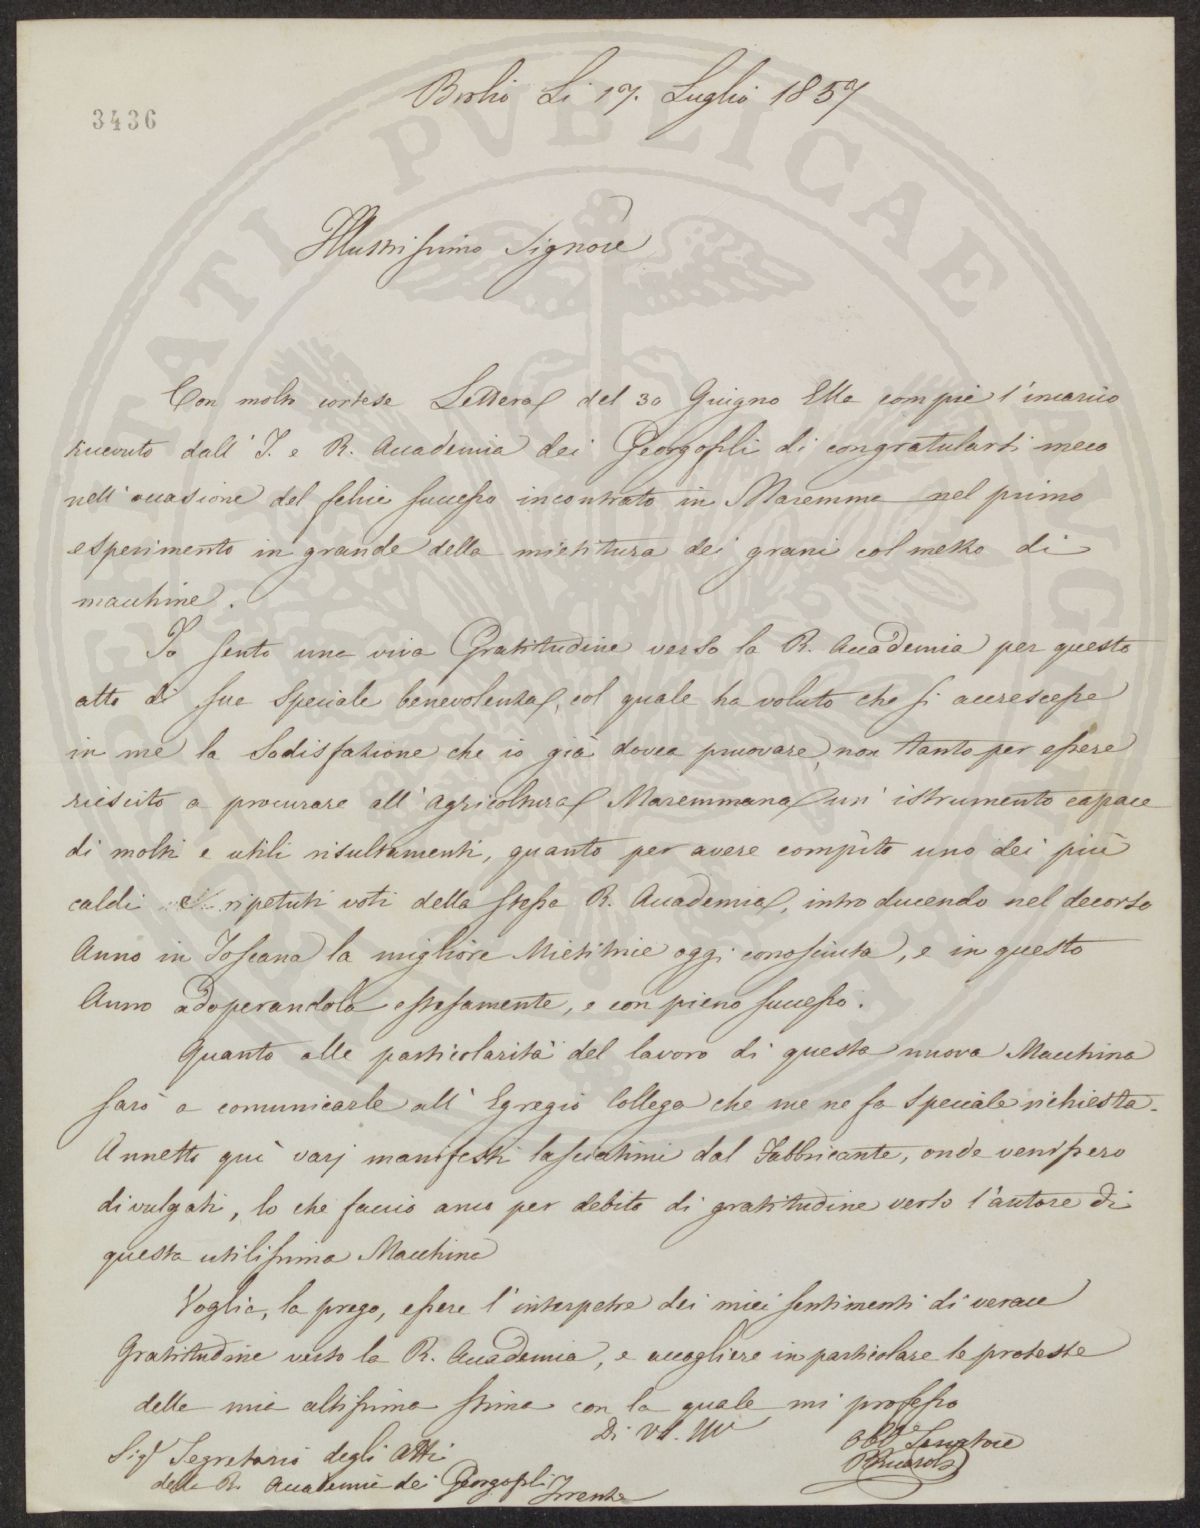 3436
Brolio Li 17. Luglio 1857
Illustrissimo Signore
Con molto cortese Lettera del 30 Giugno Ella compiè l'incarico
ricevuto dall' I. e R. Accademia dei Georgofili di congratularsi meco
nell'occasione del felice successo incontrato in Maremma nel primo
esperimento in grande della mietitura dei grani col mezzo di
macchine.
Io sento una viva Gratitudine verso la R. Accademia per questo
atto di sua speciale benevolenza, col quale ha voluto che si accrescesse
in me la Sodisfazione che io già dovea pruovare, non tanto per essere
riescito a procurare all'agricoltura Maremmana un' istrumento capace
di molti e utili risultamenti, quanto per avere compìto uno dei più
caldi e ripetuti voti della stessa R. Accademia, introducendo nel decorso
Anno in Toscana la migliore Mietitrice oggi conosciuta, e in questo
Anno adoperandola estesamente, e con pieno successo.
Quanto alle particolarità del lavoro di questa nuova Macchina
sarò a comunicarle all' Egregio Collega che me ne fa speciale richiesta.
Annetto quì varj manifesti lasciatimi dal Fabbricante, onde venissero
divulgati, lo che faccio anco per debito di gratitudine verso l'autore di
questa utilissima Macchina
Voglia, la prego, essere l'interpetre dei miei sentimenti di verace
Gratitudine verso la R. Accademia, e accogliere in particolare le proteste
della mia altissima stima con la quale mi professo
Di VS. Ill
Sigr Segretario degli Atti
della R. Accademia dei Georgofili Firenze
Obbo Servitore
BRicasoli
PUBLICAE